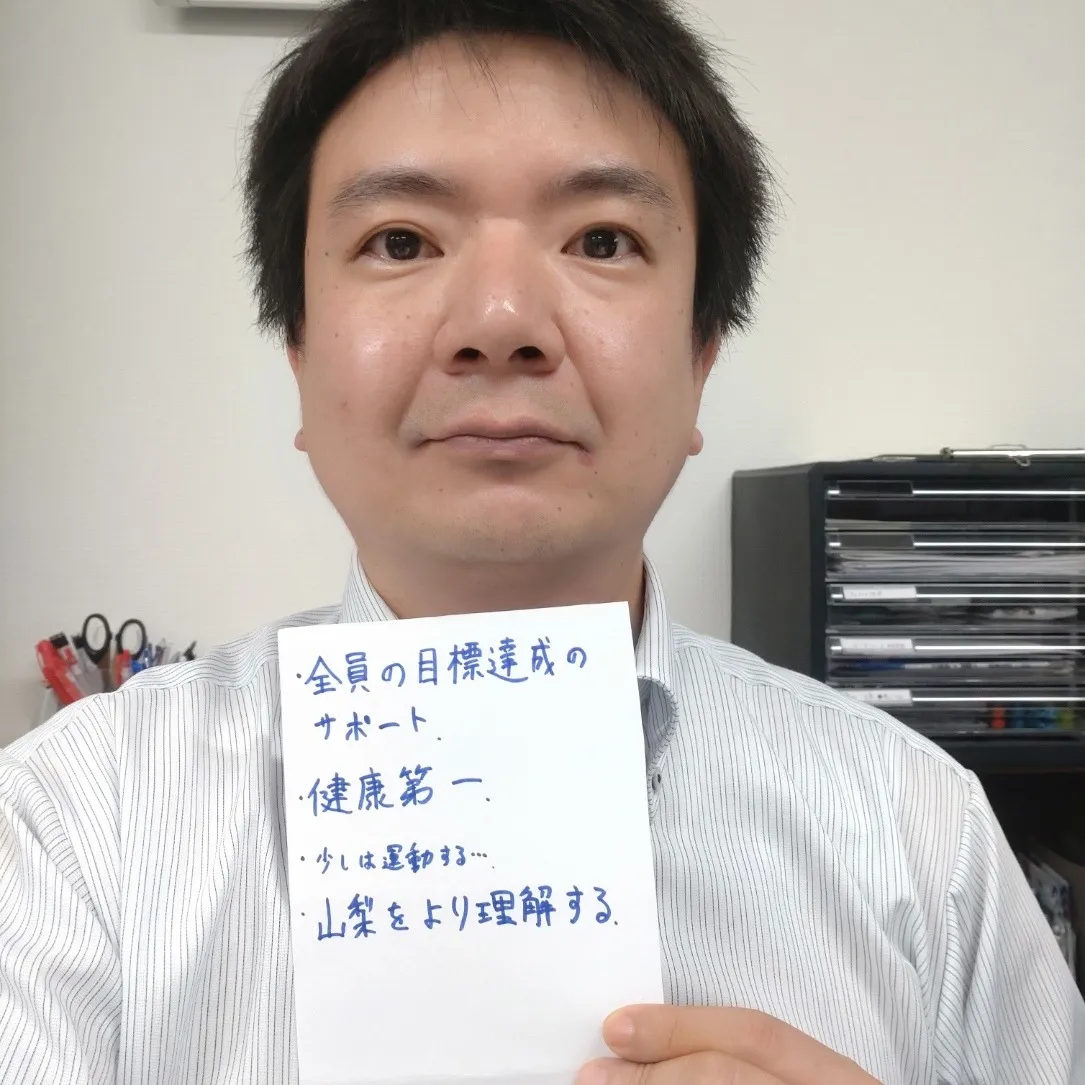 ・全員の目標達成の
サポート.
・健康第一.
・少しは運動する….
・山梨をより理解する.